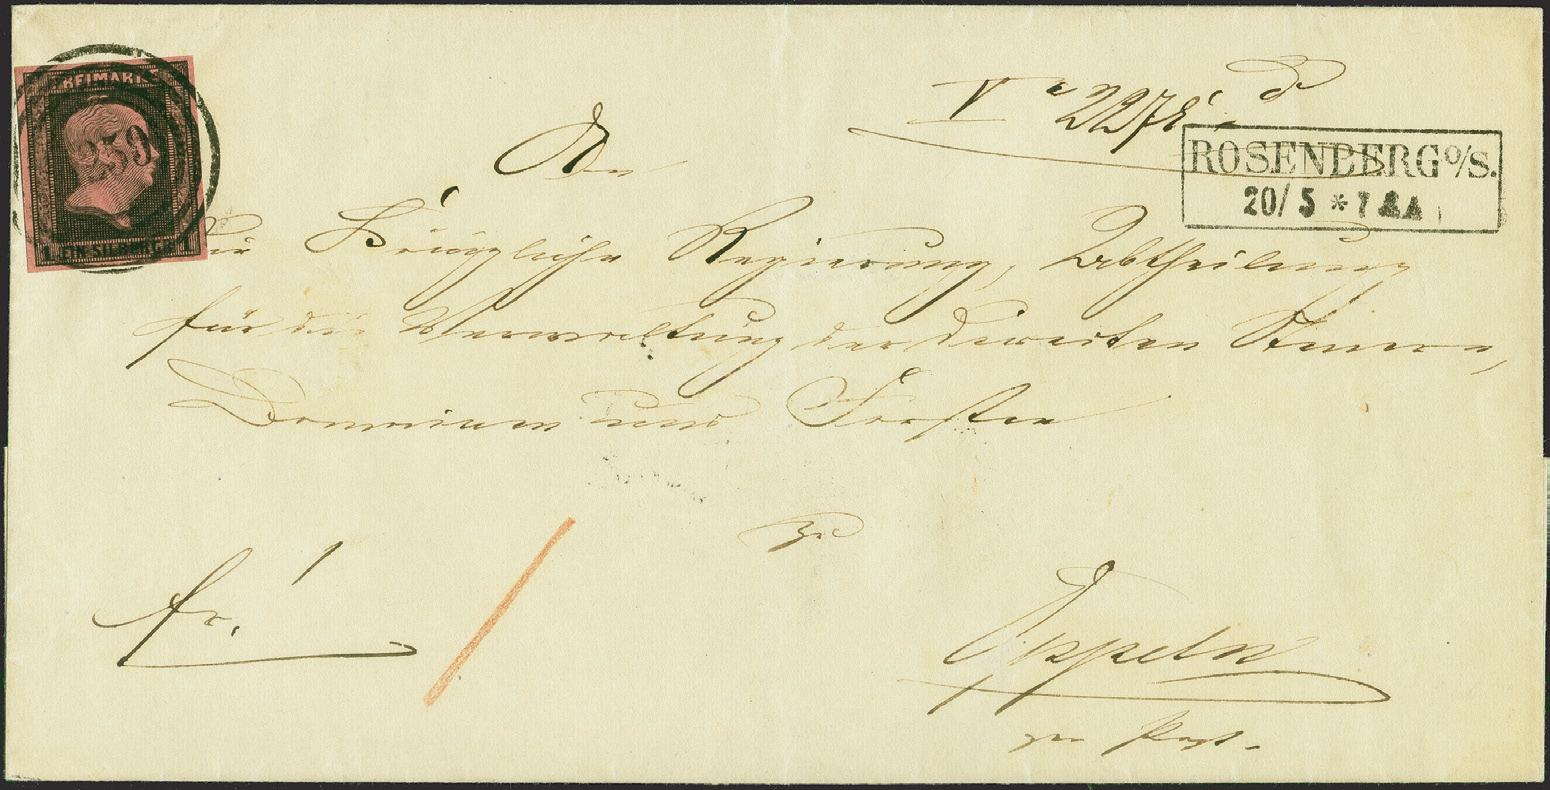 FREIMARKE
259
1 EIN SILBERGR. 1
An
ROSENBERG O/S.
20/ 5 * 7
die Königliche Regierung, Abtheilung
für die Verwaltung der direkten Steuern,
Domainen und Forsten
zu
fr.
Oppeln
zur Post.